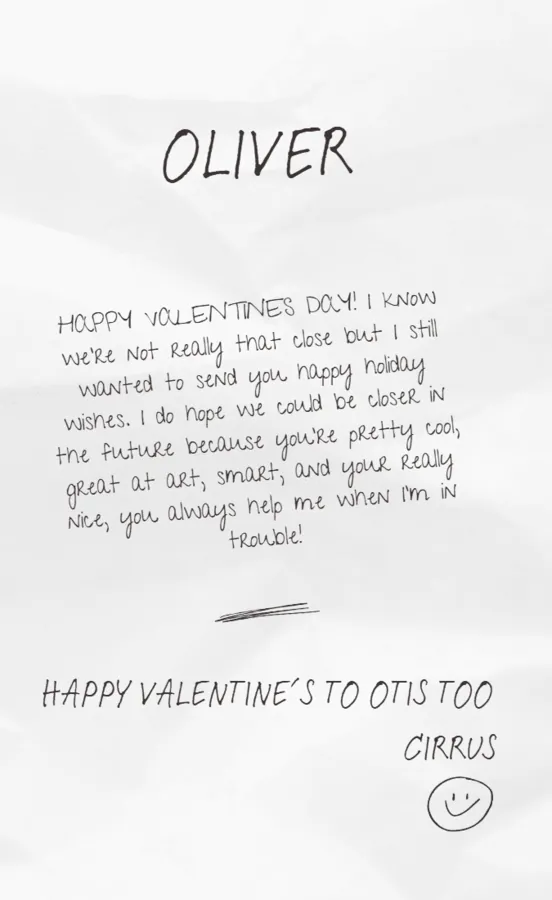 OLIVER
HAPPY VALENTINES DAY! I KNOW
we're not really that close but I still
wanted to send you happy holiday
wishes. I do hope we could be closer in
the future because you're pretty cool,
great at art, smart, and your really
nice, you always help me when I'm in
trouble!
HAPPY VALENTINE'S TO OTIS TOO
CIRRUS